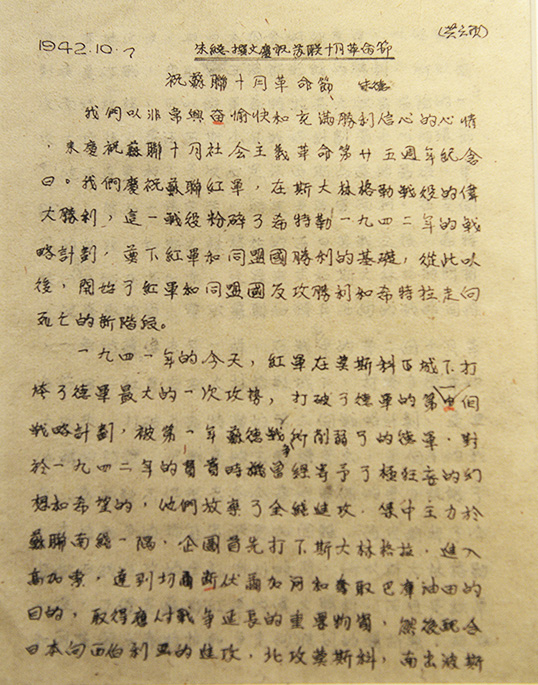 1942.10.7
朱總撰文慶祝苏联十月革命節
祝蘇聯十月革命節 朱德
我們以非常興奮愉快和充滿勝利信心的心情
，來慶祝蘇聯十月社会主義革命第廿五週年紀念
日。我們慶祝蘇聯紅軍，在斯大林格勒戰役的偉
大勝利，這一戰役粉碎了希特勒一九四二年的戰
略計劃，奠下紅軍和同盟國勝利的基礎，從此以
後，開始了紅軍和同盟國反攻勝利和希特拉走向
死亡的新階段。
一九四一年的今天，紅軍在莫斯科城下打
垮了德軍最大的一次攻勢，打破了德軍的第一個
戰略計劃，被第一年蘇德戰爭所削弱了的德軍．對
於一九四二年的時機曾經寄予了極狂妄的幻
想和希望的，他們放棄了全綫進攻．集中主力於
蘇聯南綫一隅．企圖首先打下斯大林格拉．進入
高加索，達到切斷伏爾加河和奪取巴庫油田的
目的，取得應付戰爭延長的重要物資，然後配合
日本向西伯利亞的進攻．北攻莫斯科，南出波斯